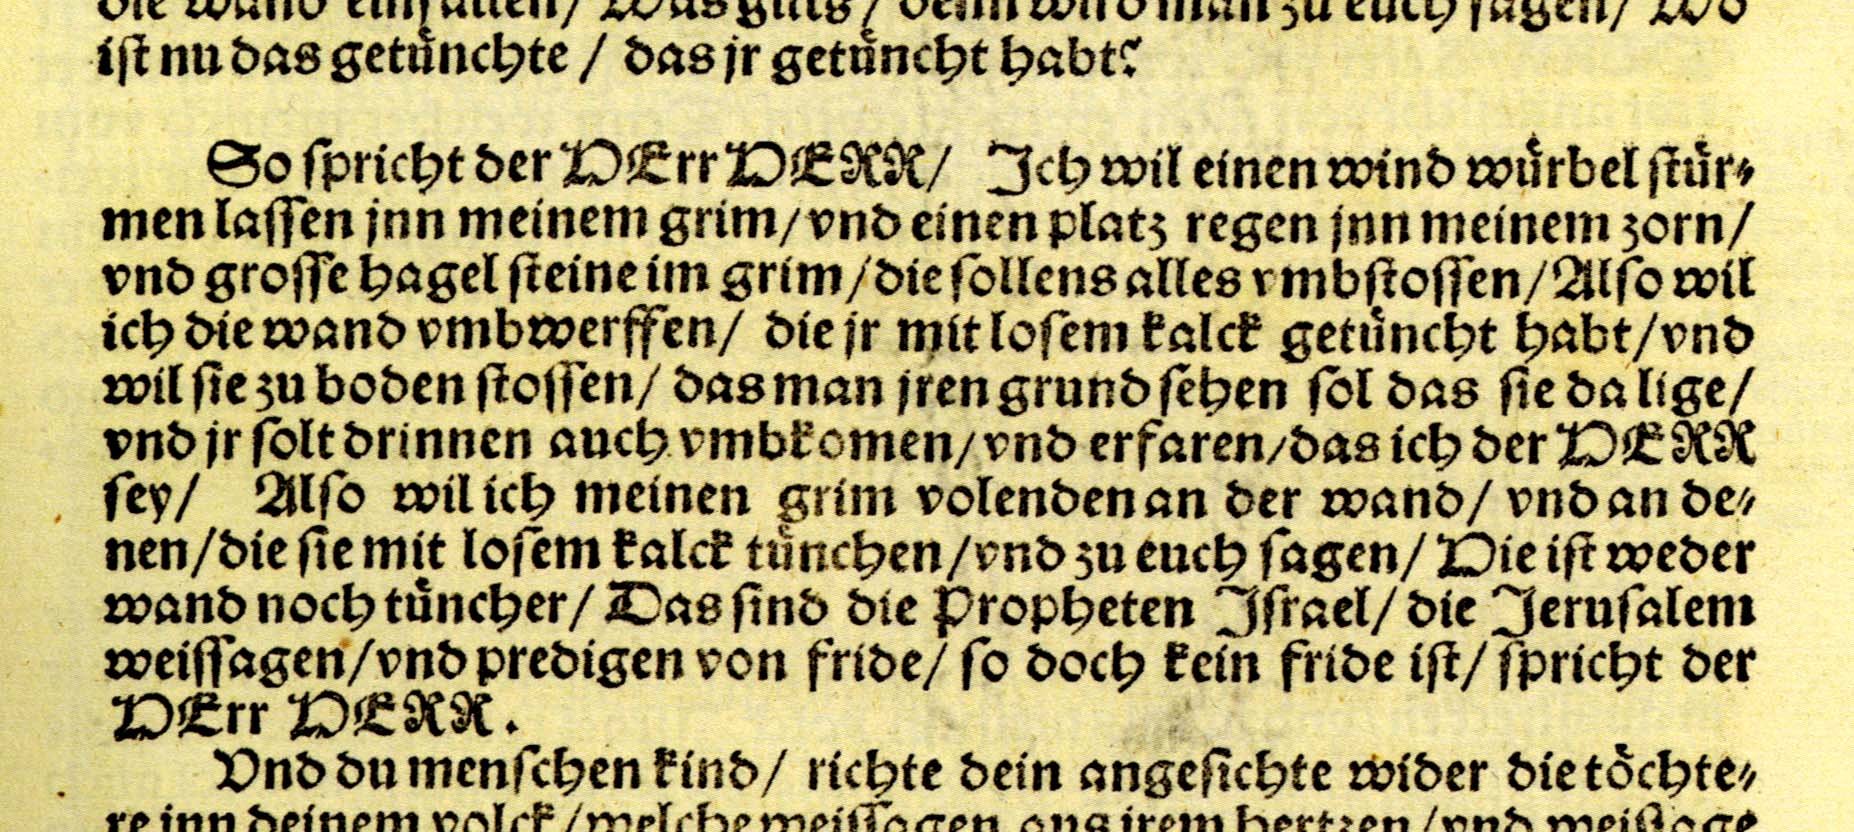 die wand einfallen/ Was gilts/ denn wird man zu euch sagen/ Wo
ist nu das getünchte / das jr getüncht habt?
So spricht der HErr HERR/ Ich wil einen wind würbel stür-
men lassen jnn meinem grim/vnd einen platz regen jnn meinem zorn/
vnd grosse hagel steine im grim/die sollens alles vmbstossen/Also wil
ich die wand vmbwerffen/ die jr mit losem kalck getüncht habt/vnd
wil sie zu boden stossen/ das man jren grund sehen sol das sie da lige/
vnd jr solt drinnen auch vmbkomen/vnd erfaren/das ich der HERR
sey/ Also wil ich meinen grim volenden an der wand/ vnd an de-
nen/die sie mit losem kalck tünchen/vnd zu euch sagen/ Hie ist weder
wand noch tüncher/ Das sind die Propheten Israel/ die Jerusalem
weissagen/vnd predigen von fride/ so doch kein fride ist/ spricht der
HErr HERR.
Vnd du menschen kind/ richte dein angesichte wider die töchte-
re jnn deinem volck/welche weissagen aus jrem hertzen/vnd weissage